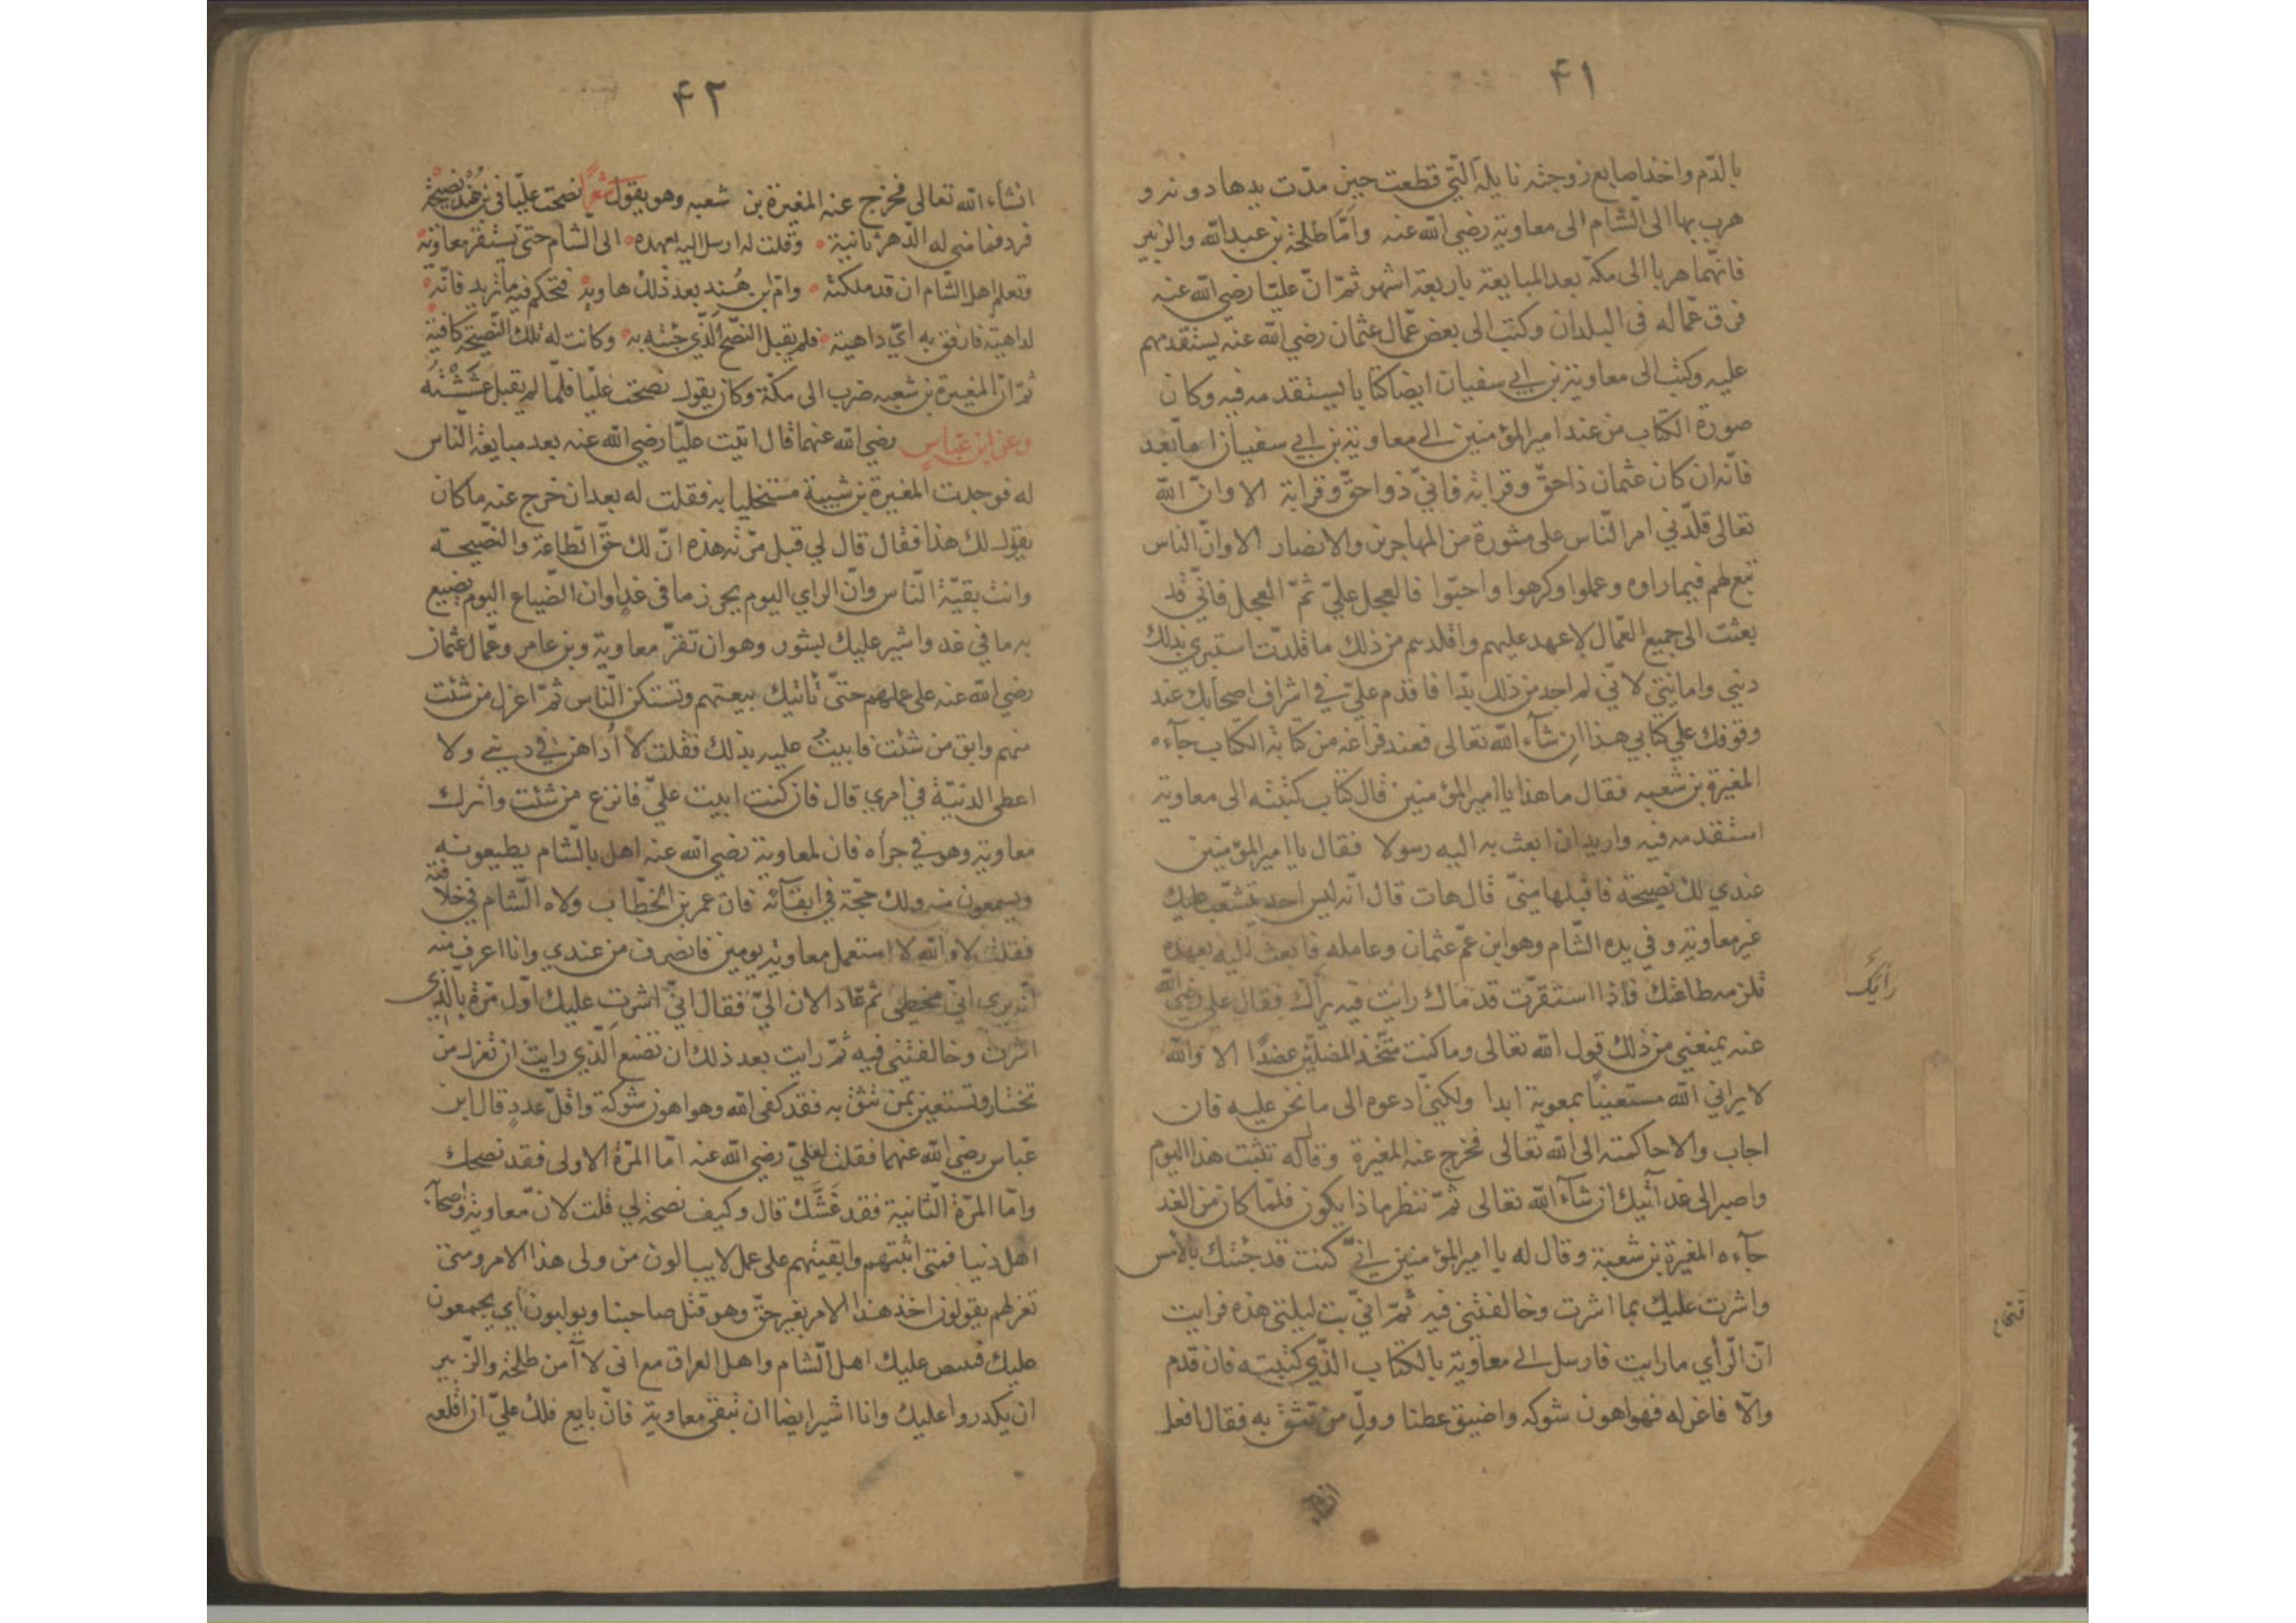 ٤١
بالدّم واخذ اصابع زوجته نايلة الّتي قطعت حين مدّت يدها دونه و
هرب بها الى الشّام الى معاوية رضي الله عنه وامّا طلحة بن عبد الله والزبير
فانّهما هربا الى مكة بعد المبايعة باربعة اشهر ثمّ انّ عليّا رضي الله عنه
فرق عمّاله في البلدان وكتب الى بعض عمّال عثمان رضي الله عنه يستقدمهم
عليه وكتب الى معاوية بن ابي سفيان ايضا كتابا يستقدمه فيه وكان
صورة الكتاب من عند امير المؤمنين الى معاوية بن ابي سفيان اما بعد
فانّه ان كان عثمان ذا حقّ وقرابة فانيّ ذوا حقّ وقرابة الا وانّ الله
تعالى قلّدني امر النّاس على مشورة من المهاجرين والانصار الا وانّ الناس
تبع لهم فيما راوه وعملوا وكرهوا واحبّوا فالعجل عليّ ثمّ العجل فانّي قد
بعثت الى جميع العمّال لاعهد عليهم واقلدهم من ذلك ما قلدّت استبري بذلك
ديني وامانتي لانّي لم اجد من ذلك بدّا فاقدم عليّ في اشراف اصحابك عند
وقوفك علي كتابي هذا ان شآء الله تعالى فعند فراغه من كتابة الكتاب جآءه
المغيرة بن شعبه فقال ما هذا يا امير المؤمنين قال كتاب كتبته الى معاوية
استقدمه فيه واريد ان ابعث به اليه رسولا فقال يا امير المؤمنين
عندي لك نصيحة فاقبلها منيّ قال هات قال انّه ليس احد يتشعّب عليك
غير معاوية وفي يده الشّام وهو ابن عمّ عثمان وعامله فابعث اليه بعهده
تلزمه طاعتك فاذا استقرّت قدماك رايت فيه برأك فقال علي رضي الله
رايك
عنه يمنعني من ذلك قول الله تعالى وما كنت متّخذ المضلّين عضدًا الا والله
لا يراني الله مستعينًا بمعوية ابدا ولكنيّ ادعوه الى ما نحن عليه فان
اجاب والا حاكمته الى الله تعالى فخرج عنه المغيرة وقال له تثبت هذا اليوم
واصبر الى غد آتيك ان شآء الله تعالى ثمّ ننظر ماذا يكون فلمّا كان من الغد
جآءه المغيرة بن شعبة وقال له يا امير المؤمنين انيّ كنت قد جئتك بالامس
واشرت عليك بما اشرت وخالفتني فيه ثمّ انيّ بت ليلتي هذه فرايت
انّ الرّأي ما رايت فارسل الى معاوية بالكتاب الذّي كتبته فان قدم
والّا فاعزله فهو اهون شوكه واضيق عطنا وولّ من تثق به فقال افعل
انشآء
٤٢
انشآء الله تعالى فخرج عنه المغيرة بن شعبه وهو يقول شعرًا نصحت عليّا في بن هند نصيحة
فرد فما مني له الدّهر ثانية وقلت له ارسل اليه بعهده الى الشام حتى يستقر معاوية
وتعلم اهل الشام ان قد ملكته وام ابن هند بعد ذلك هاوية فتحكم فيه ما تريد فانّه
لداهية فارفق به ايّ داهية فلم يقبل النصّح الّذي جئته به وكانت له تلك النصّيحة كافية
ثمّ انّ المغيرة بن شعبه ضرب الى مكة وكان يقول نصحت عليّا فلمّا لم يقبل غششته
وعن ابن عباس رضي الله عنهما قال اتيت عليّا رضي الله عنه بعد مبايعة النّاس
له فوجدت المغيرة بن شيبة مستخليا به فقلت له بعد ان خرج عنه ما كان
يقول لك هذا فقال قال لي قبل مرّته هذه انّ لك حقّ الطّاعة والنصّيحة
وانت بقيّة النّاس وانّ الراي اليوم يحرز ما في غدٍ وان الضّياع اليوم يضيع
به ما في غد واشير عليك بشور وهو ان تقرّ معاوية وبن عامر وعمّال عثمان
رضي الله عنه على عملهم حتىّ تاتيك بيعتهم وتستكن النّاس ثمّ اعزل من شئت
منهم وابق من شئت فابيتُ عليه بذلك فقلت لا أداهن في ديني ولا
اعطى الدنيّة في امري قال فان كنت ابيت عليّ فانزع من شئت واترك
معاوية وهو في جرأه فان لمعاوية رضي الله عنه اهل بالشّام يطيعونه
ويسمعون منه ولك حجّة في ابقآئه فان عمر بن الخطّاب ولاه الشّام في خلافته
فقلت لا والله لا استعمل معاوية يومين فانصرف من عندي وانا اعرف منه
انّه يرى انّي مخطى ثم عاد الان اليّ فقال انيّ اشرت عليك اوّل مرّة بالّذي
اشرت وخالفتنى فيه ثمّ رايت بعد ذلك ان تصنع الّذي رايت ان تعزل من
تختار وتستعين بمن تثق به فقد كفى الله وهو اهون شوكة واقلّ عددٍ قال ابن
عبّاس رضي الله عنهما فقلت لعليّ رضي الله عنه امّا المرّة الاولى فقد نصحك
وامّا المرّة الثّانية فقد غشّك قال وكيف نصحه لي قلت لانّ معاوية واصحآبه
اهل دنيا فمتى اثبتهم وابقيتهم على عمل لا يبالون من ولى هذا الامر ومتى
تعزلهم يقولون اخذ هذا الامر بغير حق وهو قتل صاحبنا ويولبون اي يجمعون
عليك اهل الشام واهل العراق مع انى لا آمن طلحة والزبير
ان يكدروا عليك وانا اشير ايضا ان تبقى معاوية فانّ بايع فلك عليّ ان اقلعه